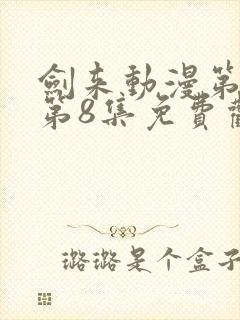 劍来動漫第
第8集免費觀
璐璐是个盒子